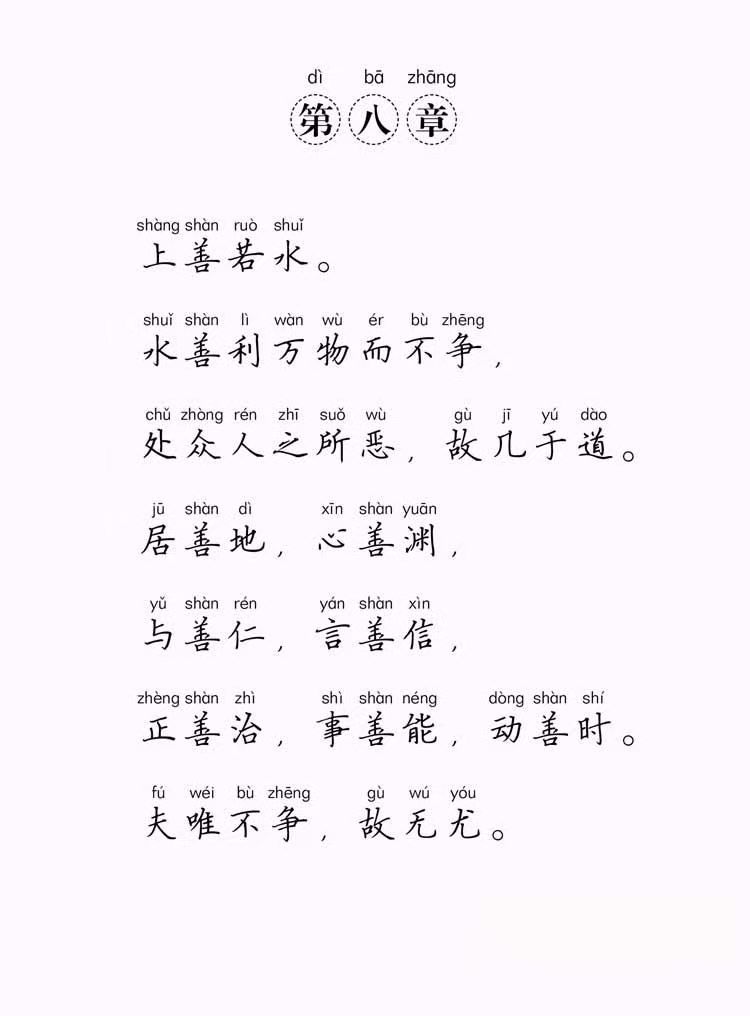 dì bā zhāng
第八章
shàng shàn ruò shuǐ
上善若水。
shuǐ shàn lì wàn wù ér bù zhēng
水善利万物而不争，
chǔ zhòng rén zhī suǒ wù gù jī yú dào
处众人之所恶，故几于道。
jū shàn dì xīn shàn yuān
居善地，心善渊，
yǔ shàn rén yán shàn xìn
与善仁，言善信，
zhèng shàn zhì shì shàn néng dòng shàn shí
正善治，事善能，动善时。
fú wéi bù zhēng gù wú yóu
夫唯不争，故无尤。